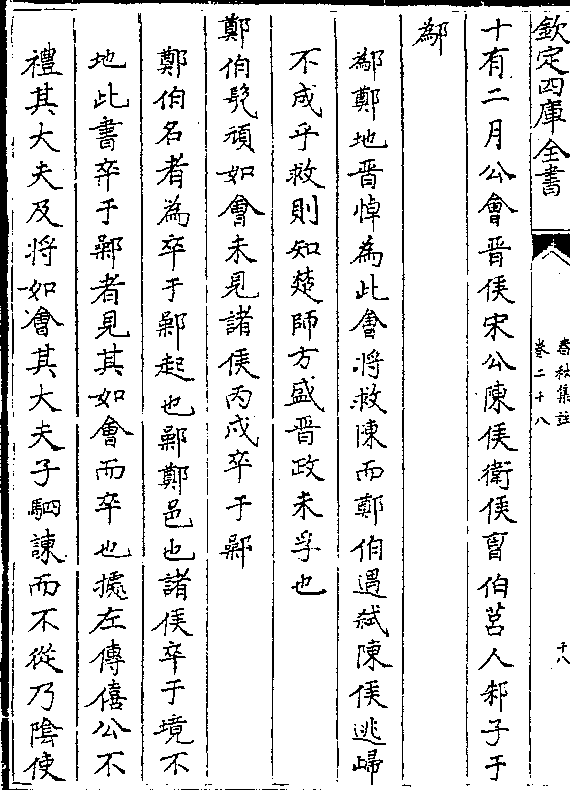 欽定四庫全書
春秋集註
卷二十八
十八
十有二月公會晉侯宋公陳侯衛侯曹伯莒人邾子于
鄬
鄬鄭地晉悼為此會將救陳而鄭伯遇弑陳侯逃歸
不成乎救則知楚師方盛晉政未孚也
鄭伯髠頑如會未見諸侯丙戌卒于鄵
鄭伯名者為卒于鄵起也鄵鄭邑也諸侯卒于境不
地此書卒于鄵者見其如會而卒也據左傳僖公不
禮其大夫及將如會其大夫子駟諌而不從乃陰使